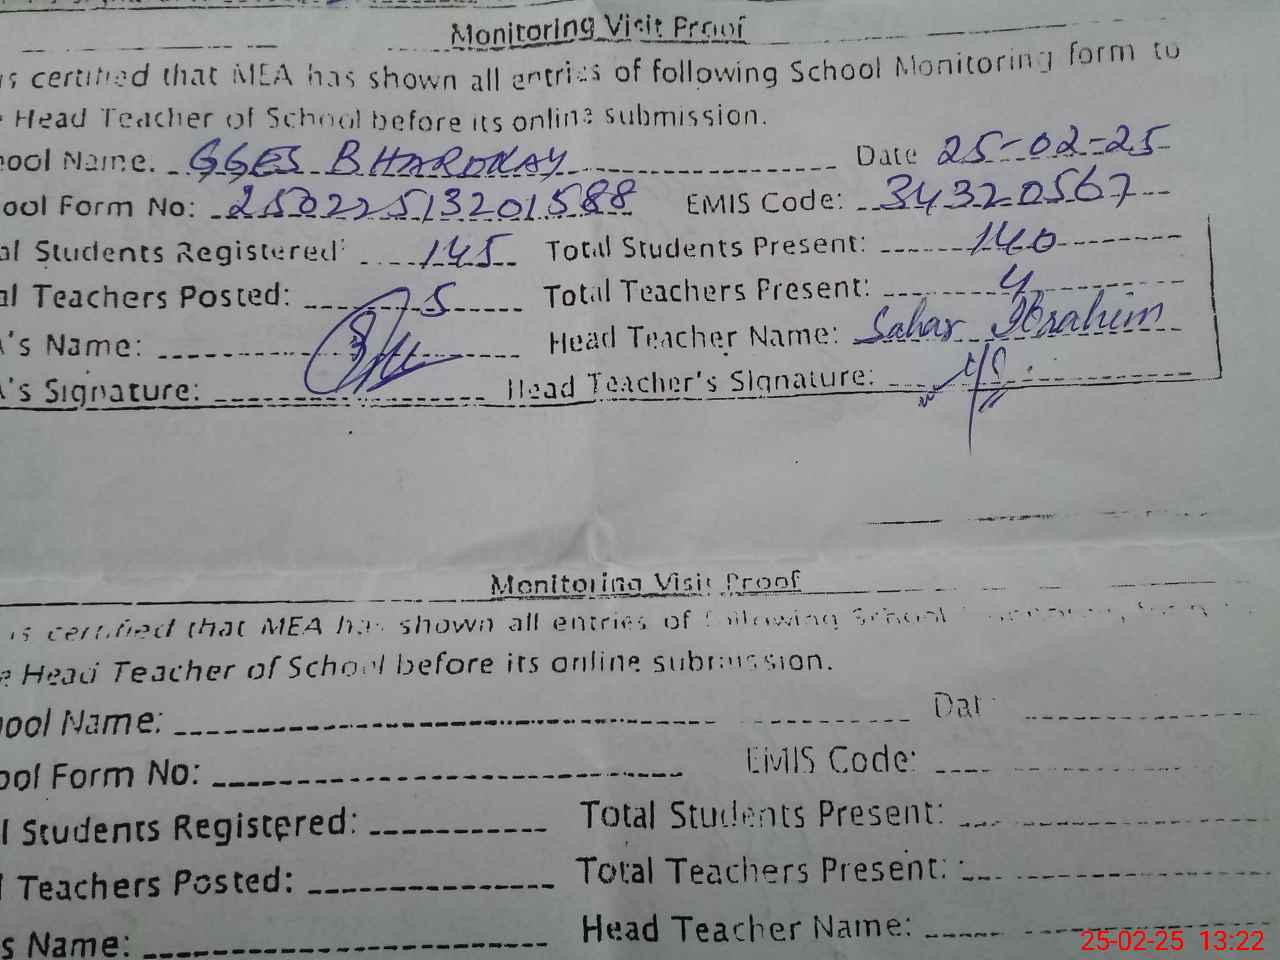 Monitoring Visit Proof
is certified that MEA has shown all entries of following School Monitoring form to
Head Teacher of School before its online submission.
ool Name. GGES Date 25-02-25
ool Form No: 250225513201588 EMIS Code: 34320567
al Students Registered: 145 Total Students Present: 140
al Teachers Posted: 5 Total Teachers Present: 4
's Name: Head Teacher Name: Sahar Ibrahim
's Signature: Head Teacher's Signature:
Monitoring Visit Proof
is certified that MEA has shown all entries of following School
e Head Teacher of School before its online submission.
ool Name: Dat
ool Form No: EMIS Code:
l Students Registered: Total Students Present:
l Teachers Posted: Total Teachers Present:
s Name: Head Teacher Name:
25-02-25 13:22